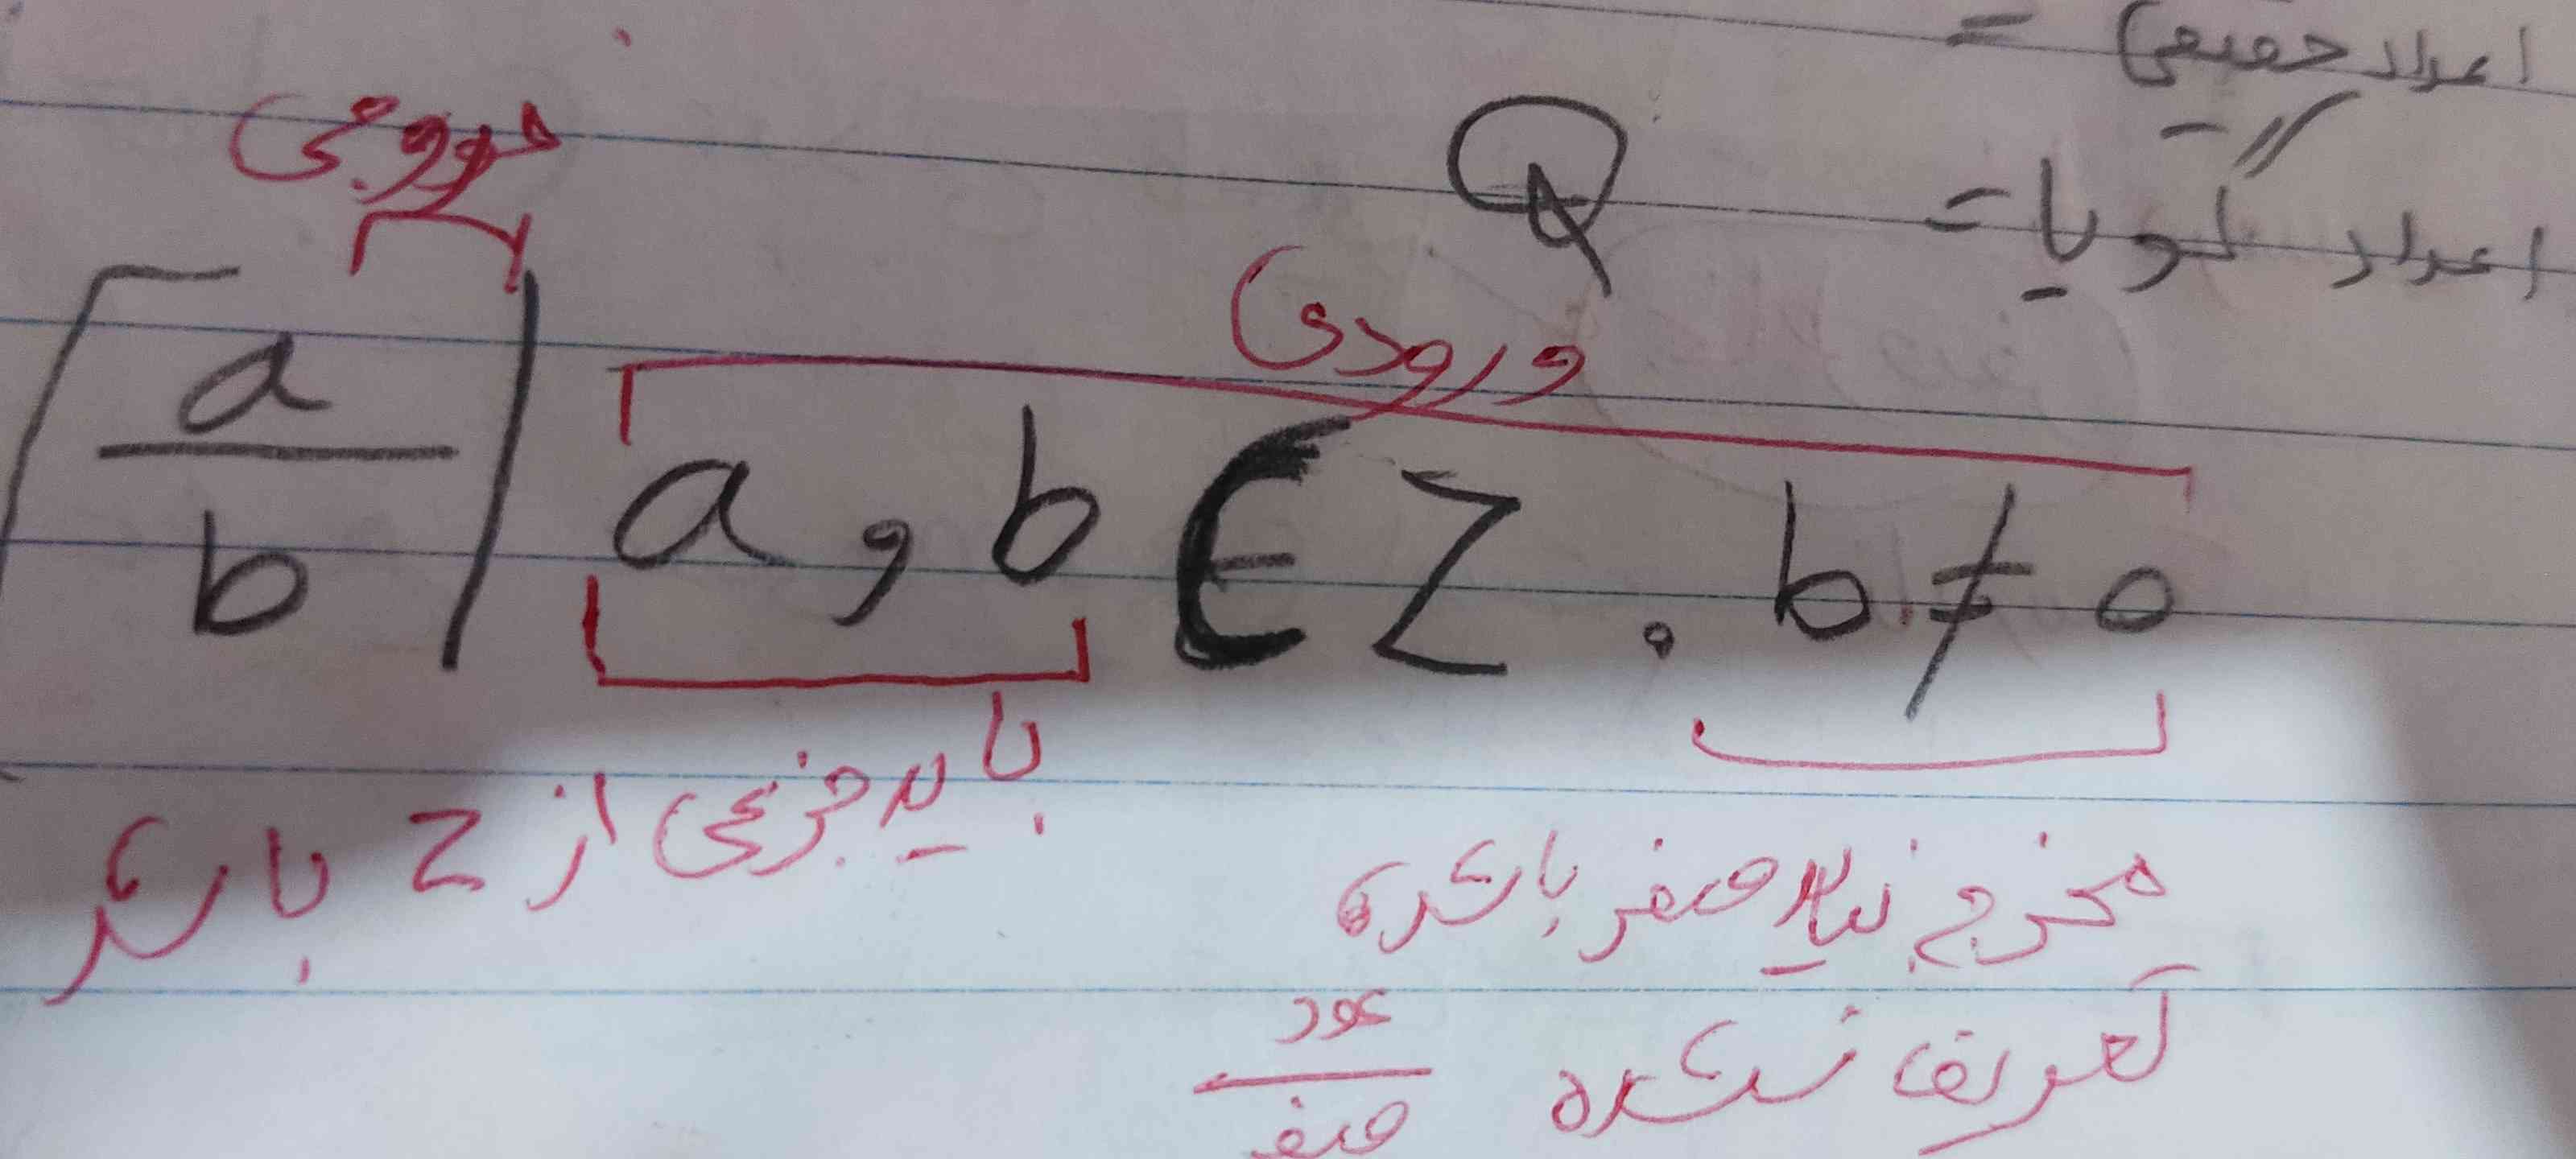 اعداد حقیقی =
اعداد گویا = Q
خروجی
ورودی
a/b | a , b ∈ Z . b ≠ 0
باید جزئی از Z باشد
مخرج نباید صفر باشده
تعریف نشده عدد/صفر